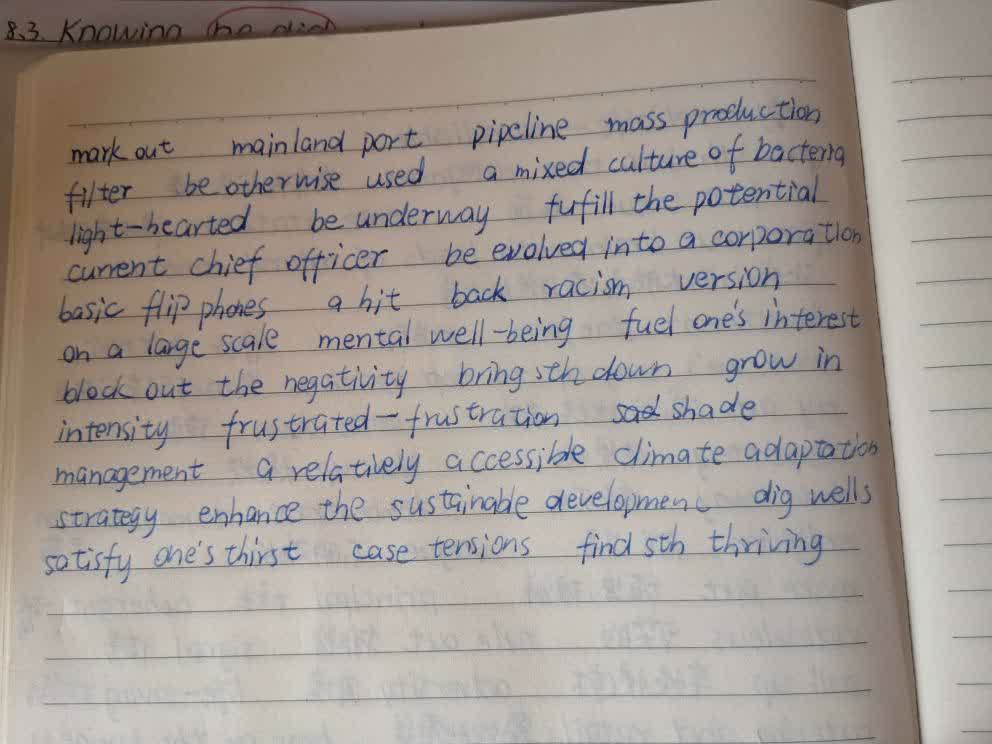 8.3 Knowing
mark out mainland port pipeline mass production
filter be otherwise used a mixed culture of bacteria
light-hearted be underway fufill the potential
current chief officer be evolved into a corporation
basic flip phones a hit back racism version
on a large scale mental well-being fuel one's interest
block out the negativity bring sth down grow in
intensity frustrated - frustration sad shade
management a relatively accessible climate adaptation
strategy enhance the sustainable development dig wells
satisfy one's thirst case tensions find sth thriving